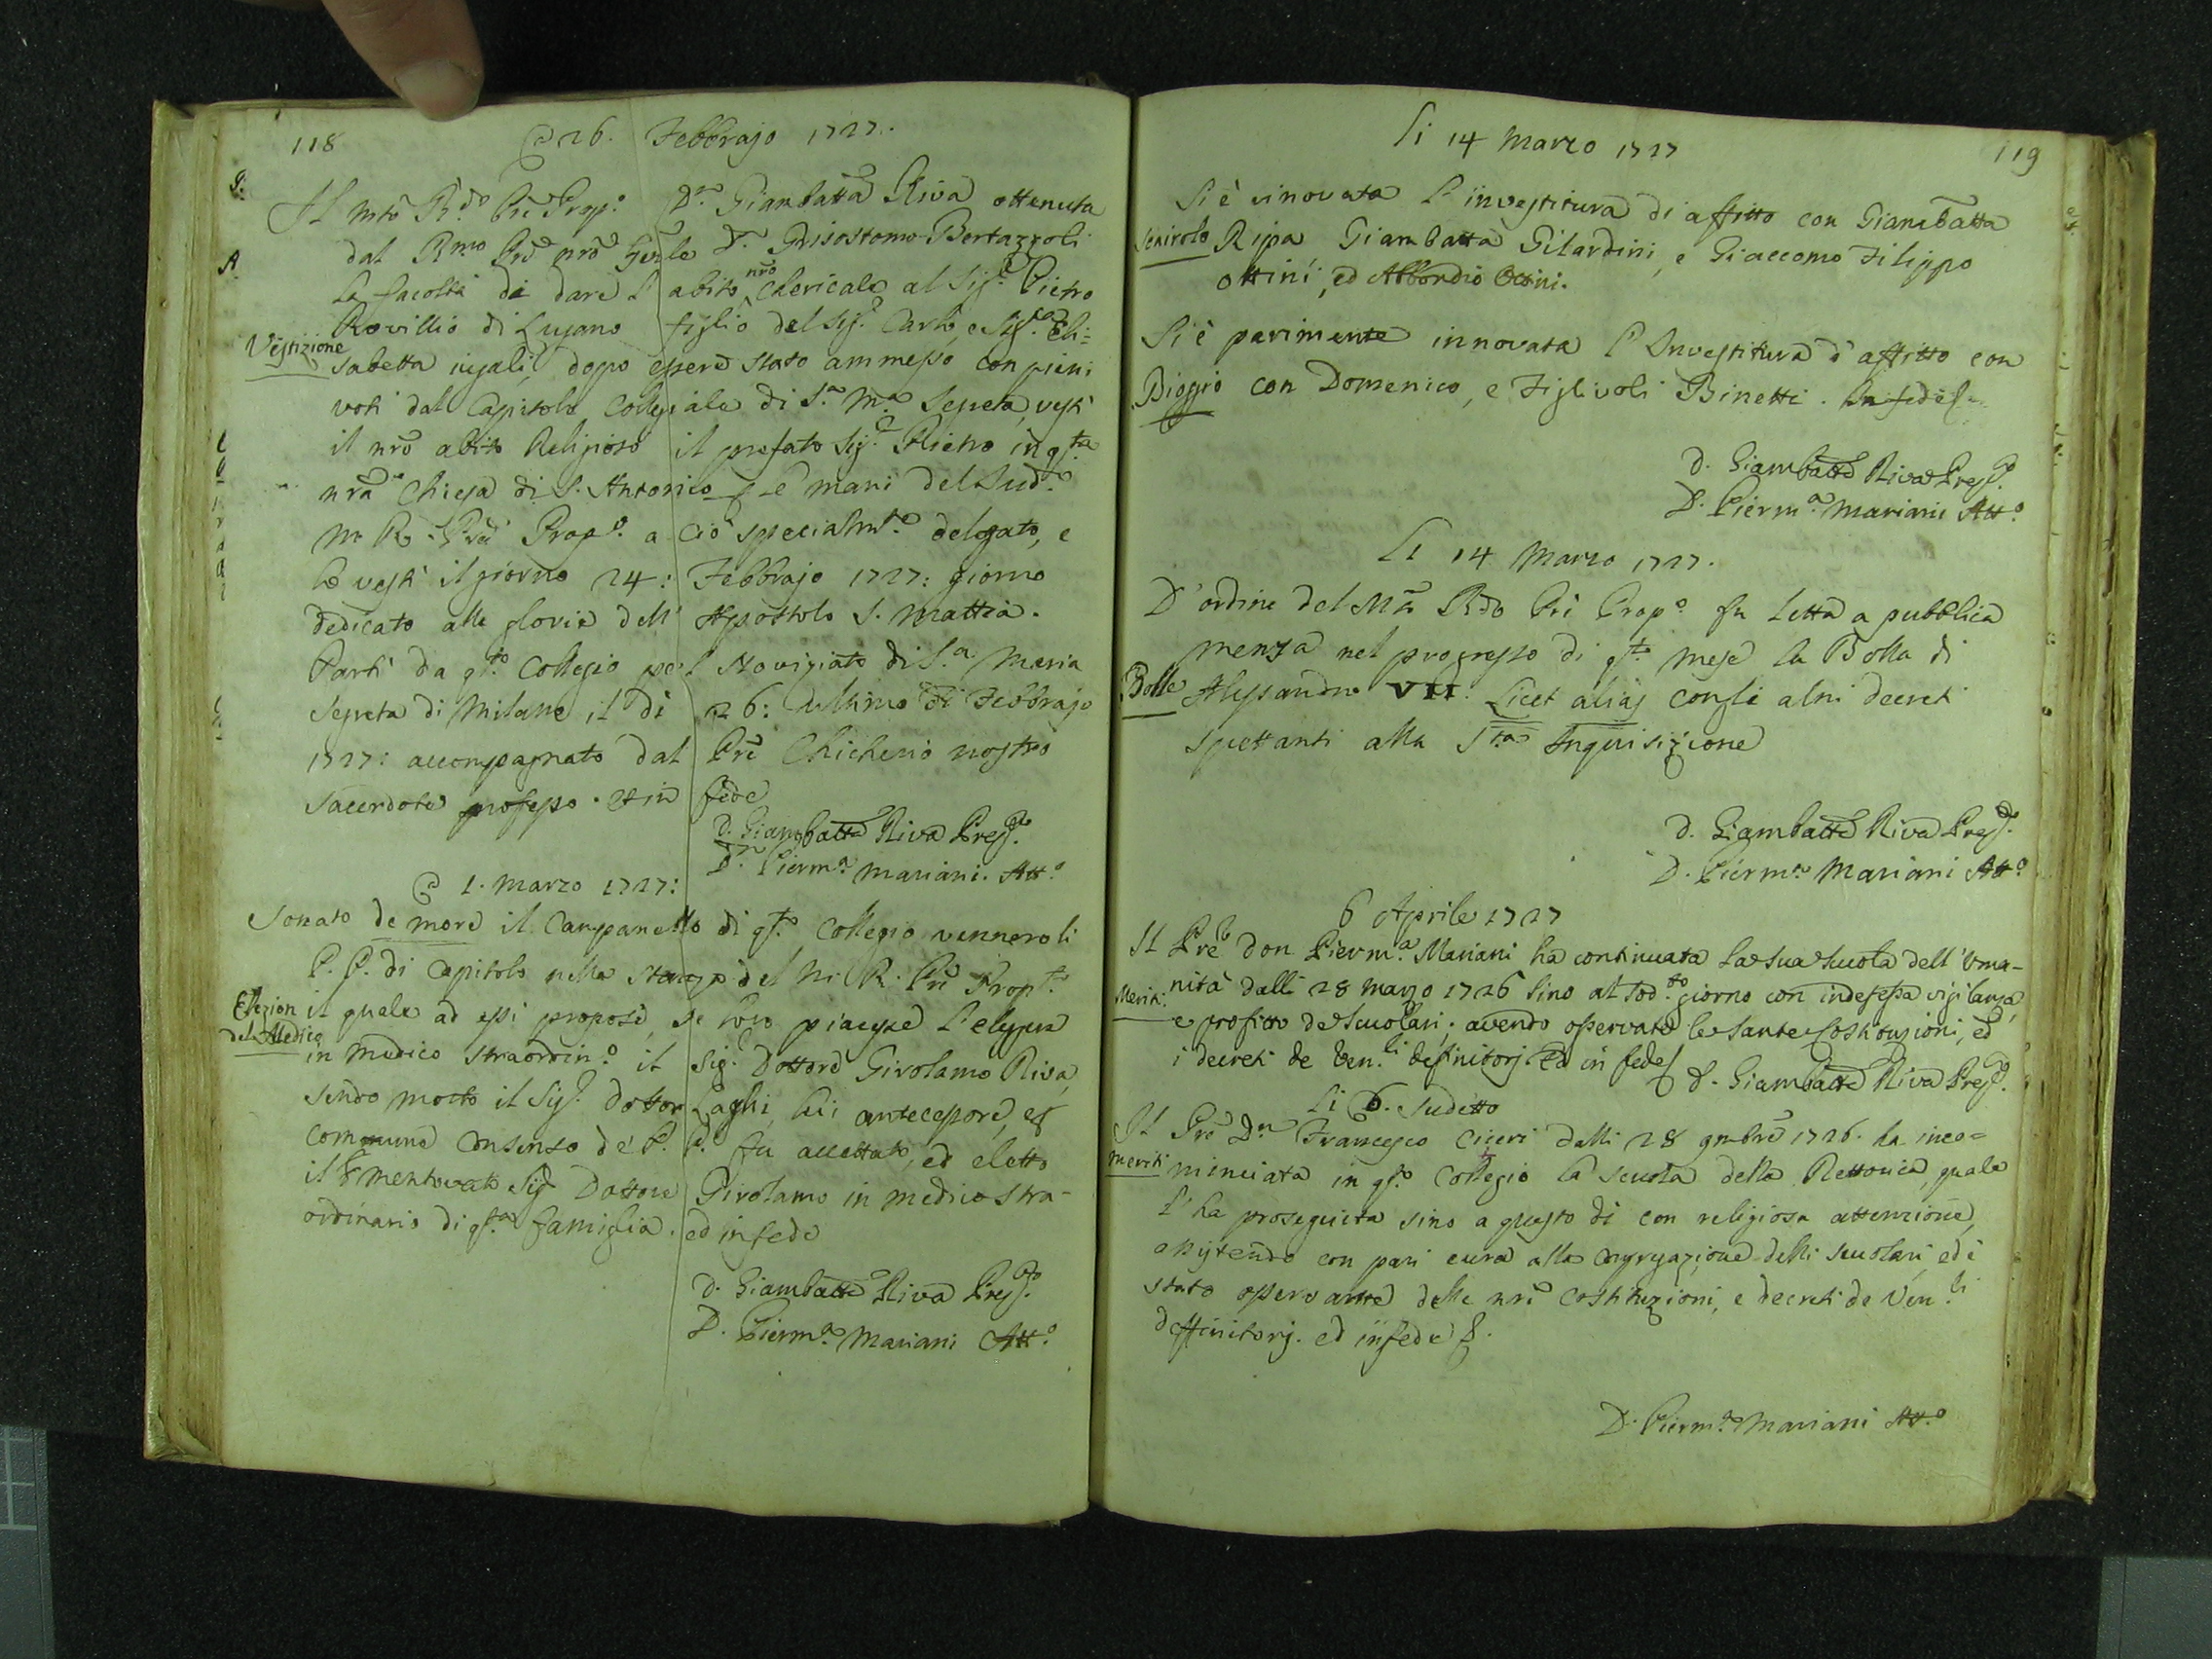 118
26. Febbrajo 1727.
Il mto R.do Prē Prop.o D.n Giambattā Riva ottenuta
dal R.mo Prē nrō Gn̄le D. Grisostomo Bertazzoli
la facoltà di dare l'abito nrō Chericale al Sig.r Pietro
Rovillio di Lugano figlio del Sig.r Carlo, e Sig.ra Eli=
Vestizione
sabetta iugali, dopo essere stato ammesso con pieni
voti dal Capitolo Collegiale di S.a M.a Segreta, vestì
il nrō abito Religioso il prefato Sig.r Pietro in q.ta
nrā Chiesa di S. Antonio p le mani del Sud.o
M. R. Prē Prop.o a ciò specialm.te delegato, e
lo vestì il giorno 24: Febbrajo 1727: giorno
dedicato alle glorie dell' Apostolo S. Mattia.
Partì da q.to Collegio pel Noviziato di S.a Maria
Segreta di Milano, il dì 26: ultimo di Febbrajo
1727: accompagnato dal Prē Chicherio nostro
Sacerdote professo. et in fede
D. Giambattā Riva Prep.to
D.n Pierm.a Mariani. Att.o
1. Marzo 1727:
Sonato de more il Campanello di q.to Collegio vennero li
P. P. di Capitolo nella stanza del M. R. Prē Prop.to
Elezion
del Medico
il quale ad essi propose, se loro piacesse l'elegger
in Medico straordin.o il Sig. Dottore Girolamo Riva,
sendo morto il Sig.r Dottor Laghi, lui antecessore, e p
comune consenso de' P. P. fu accettato, ed eletto
il mentovato Sig.r Dottore Girolamo in medico stra-
ordinario di q.ta famiglia. ed in fede
D. Giambattā Riva Prep.to
D. Pierm.a Mariani Att.o
119
Li 14 Marzo 1727
Si è rinovata l'investitura di affitto con Giambatta
Scairolo
Ripa Giambatta Gilardini, e Giaccomo Filippo
Ottini, ed Abbondio Ottini.
Si è parimente innovata l'Investitura d'affitto con
Bioggio
con Domenico, e Figlivoli Binetti. In fede
D. Giambattā Riva Prep.to
D. Pierm.a Mariani Att.o
Li 14 Marzo 1727.
D'ordine del M.to R.do Prē Prop.o fu letta a pubblica
menza nel progresso di q.to mese la Bolla di
Bolle
Alessandro VII. Licet alias con gli altri decreti
spettanti alla S.ta Inquisizione
D. Giambattā Riva Prep.to
D. Pierm.a Mariani Att.o
6 Aprile 1727
Il Prē don Pierm.a Mariani ha continuata la sua scuola dell'Uma-
Meriti
nità dalli 28 marzo 1726 sino al sod.to giorno con indefessa vigilanza,
e profitto de Scuolari; avendo osservate le Sante Costituzioni, ed
i decreti de Ven.li definitorj. Ed in fede
D. Giambattā Riva Prep.to
Li 6. sudetto
Il Prē D.n Francesco Ciceri dalli 28 9mbrē 1726. ha inco=
Meriti
minciata in q.to Collegio la scuola della Rettorica, quale
l'ha proseguita sino a questo dì con religiosa attenzione,
assistendo con pari cura alla congregazione delli scuolari, ed è
stato osservante delle nrē Costituzioni, e decreti de Ven.li
deffinitorj. ed in fede
D. Pierm.a Mariani Att.o